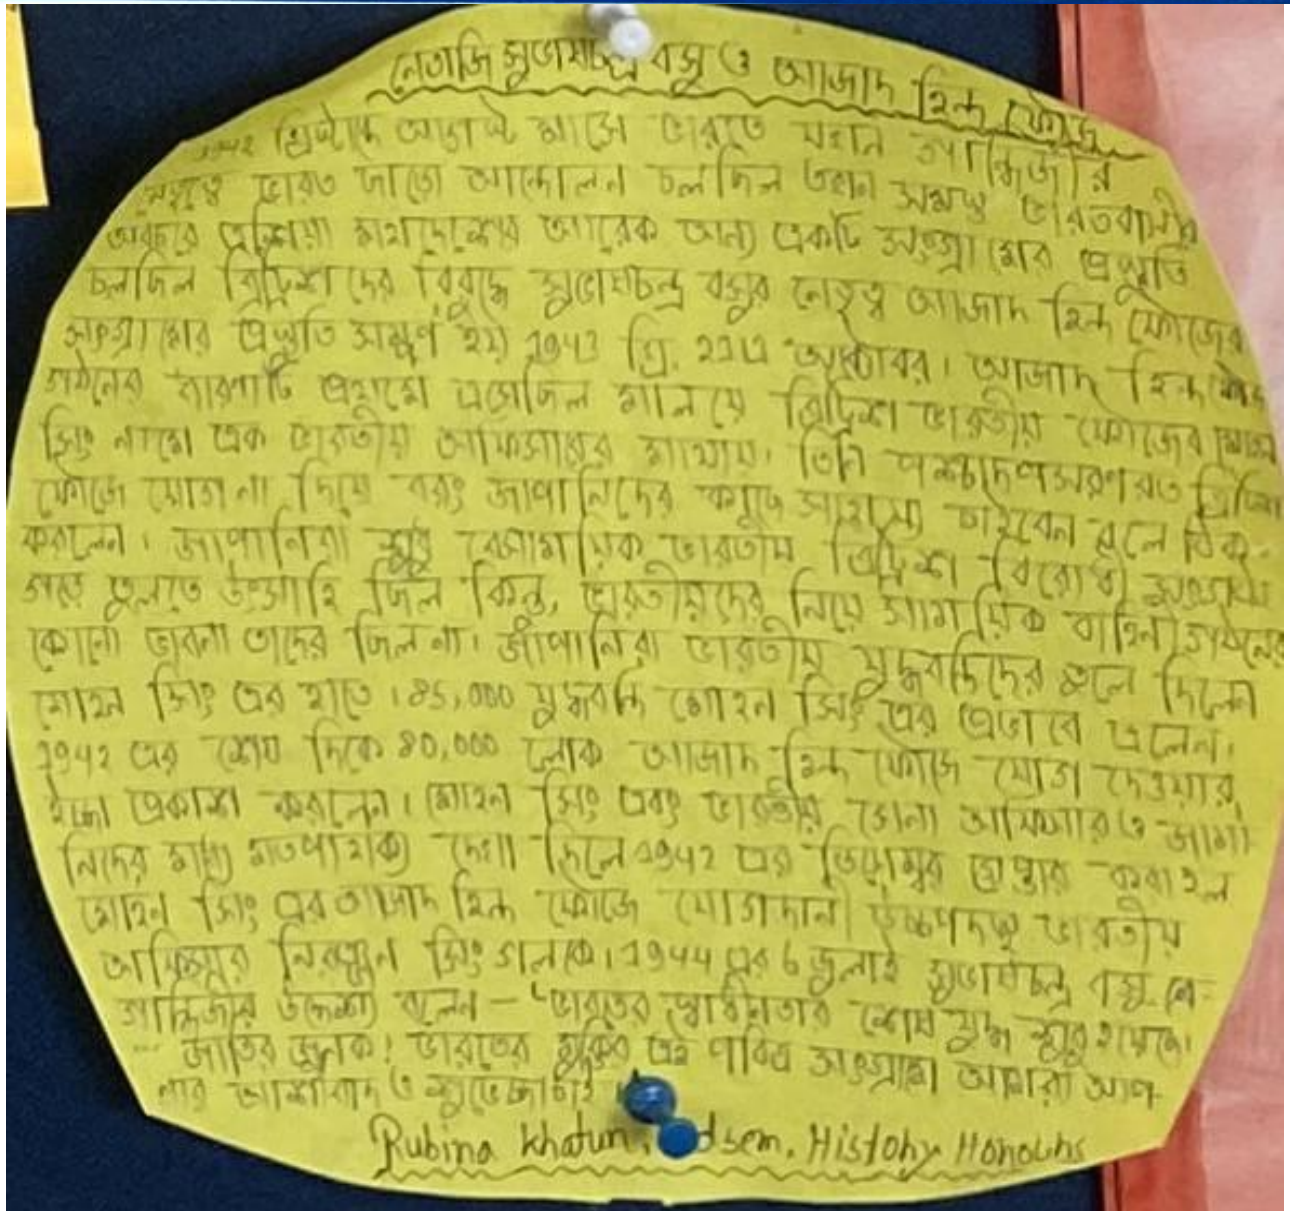 নেতাজি সুভাষচন্দ্র বসু ও আজাদ হিন্দ ফৌজ
1942 খ্রিষ্টাব্দে আগস্ট মাসে ভারতে যখন গান্ধিজীর
নেতৃত্বে ভারত ছাড়ো আন্দোলন চলছিল তখন সমস্ত ভারতবাসীর
অগোচরে এশিয়া মহাদেশের আরেক অন্য একটি সংগ্রামের প্রস্তুতি
চলছিল ব্রিটিশদের বিরুদ্ধে সুভাষচন্দ্র বসুর নেতৃত্ব আজাদ হিন্দ ফৌজের
সংগ্রামের প্রস্তুতি সম্পূর্ণ হয় 1943 খ্রি. 21এ অক্টোবর। আজাদ হিন্দ ফৌজ
গঠনের ধারণাটি প্রথমে এসেছিল মালয়ে ব্রিটিশ ভারতীয় ফৌজের মোহন
সিং নামে এক ভারতীয় অফিসারের মাথায়। তিনি পশ্চাদপসরণরত ব্রিটিশ
ফৌজে যোগ না দিয়ে বরং জাপানিদের কাছে সাহায্য চাইবেন বলে ঠিক
করলেন। জাপানিরা শুধু বেসামরিক ভারতীয় ব্রিটিশ বিরোধী সংগঠন
গড়ে তুলতে উৎসাহি ছিল কিন্তু, ভারতীয়দের নিয়ে সামরিক বাহিনী গঠনের
কোনো ভাবনা তাদের ছিল না। জাপানিরা ভারতীয় যুদ্ধবন্দিদের তুলে দিলেন
মোহন সিং এর হাতে। 45,000 যুদ্ধবন্দি মোহন সিং এর এভাবে এলেন।
1942 এর শেষ দিকে 40,000 লোক আজাদ হিন্দ ফৌজে যোগ দেওয়ার
ইচ্ছা প্রকাশ করলেন। মোহন সিং এবং ভারতীয় সেনা অফিসার ও জাপা
নিদের মধ্যে মতপার্থক্য দেখা দিলে 1942 এর ডিসেম্বর গ্রেপ্তার করা হল
মোহন সিং এর আজাদ হিন্দ ফৌজে যোগদান উচ্চপদস্থ ভারতীয়
অফিসার নিরঞ্জন সিং গিলকে। 1944 এর 6 জুলাই সুভাষচন্দ্র বসু
গান্ধিজীর উদ্দেশ্যে বলেন – "ভারতের স্বাধীনতার শেষ যুদ্ধ শুরু হয়েছে।
জাতির জনক! ভারতের মুক্তির এই পবিত্র সংগ্রামে আমরা আপ-
নার আশীর্বাদ ও শুভেচ্ছা চাই
Rubina Khatun, sem, History Honours